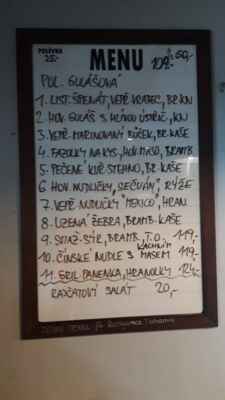 POLÉVKA
25,-
MENU
109,-
POL. GULÁŠOVÁ
1. LIST. ŠPENÁT, VEPŘ. VRABEC, BR. KN
2. HOV. GULÁŠ S HLÍVOU ÚSTŘIČ., KN
3. VEPŘ. MARINOVANÝ BŮČEK, BR. KAŠE
4. FAZOLKY NA KYS., HOV. MASO, BRAMB.
5. PEČENÉ KUŘ. STEHNO, BR. KAŠE
6. HOV. NUDLIČKY „SEČUÁN“, RÝŽE
7. VEPŘ. NUDLIČKY "MEXICO", HRAN.
8. UZENÁ ŽEBRA, BRAMB. KAŠE
9. SMAŽ. SÝR, BRAMB., T.O. 119,-
10. ČÍNSKÉ NUDLE S KACHNÍM MASEM 119,-
11. GRIL. PANENKA, HRANOLKY 124,-
RAJČATOVÝ SALÁT 20,-